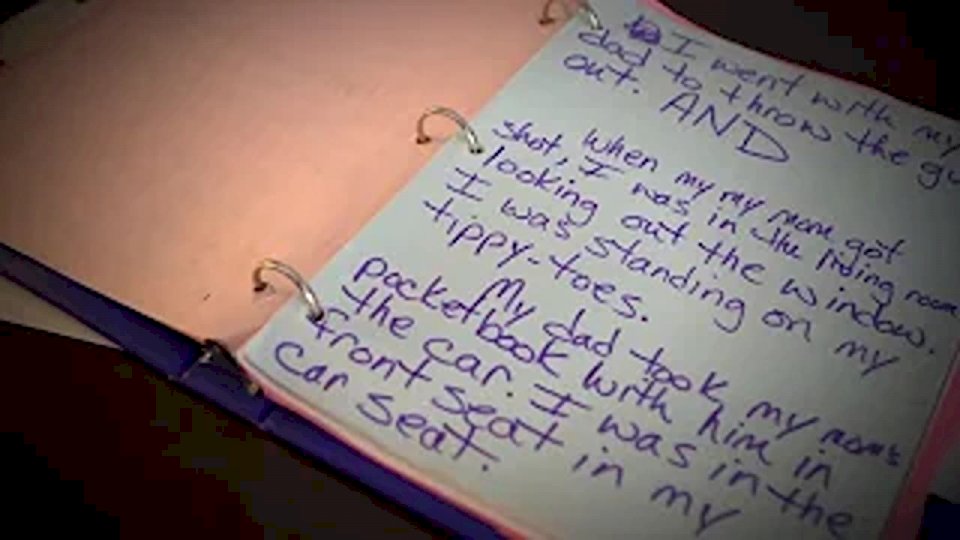 I went with my
dad to throw the gu
out. AND
when my my mom got
shot, I was in the liding room
looking out the window.
I was standing on my
tippy-toes.
My dad took my moms
pocketbook with him in
the car. I was in the
front seat in my
car seat.